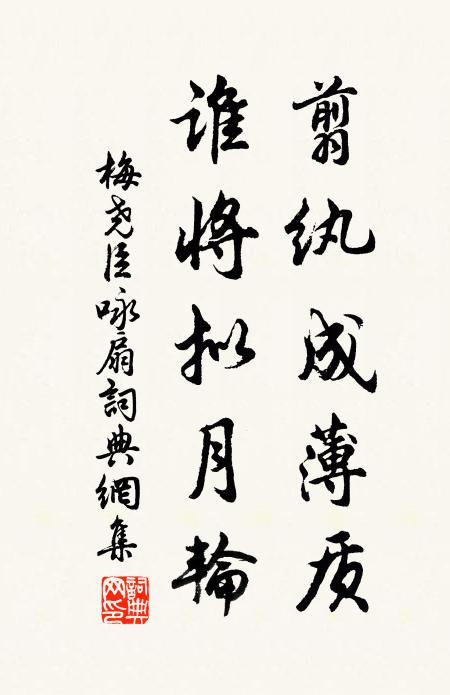 剪纨成薄质
谁将拟月轮
梅尧臣咏扇詞典網集
詞典网印